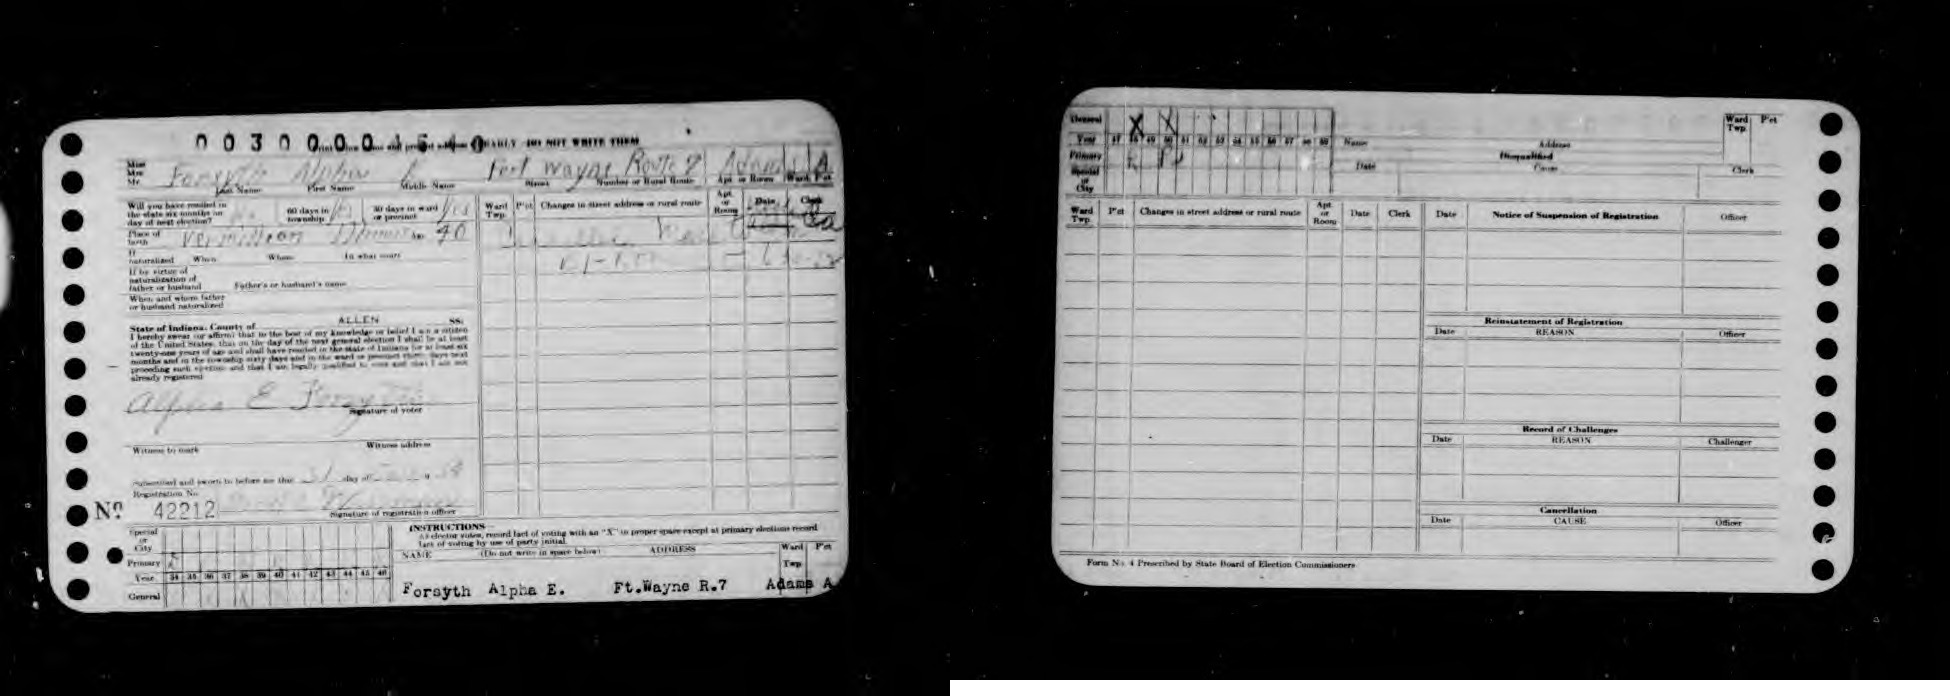 0 0 3 0 0 0 0 1 5 4 0 EARLY DO NOT WRITE THEM
Miss
Mrs
Mr. Forsyth Alpha E Fort Wayne Route 7 Adams A
Last Name First Name Middle Name Street Number or Rural Route Apt or Room Ward P'ct
Will you have resided in
the state six months on
day of next election? 60 days in
township 30 days in ward
or precinct Yes
Ward
Twp. P'ct Changes in street address or rural route Apt.
or
Room Date Clerk
Place of
birth Vermillion Illinois 40
If
naturalized When Where In what court
If by virtue of
naturalization of
father or husband Father's or husband's name
When and where father
or husband naturalized
State of Indiana, County of ALLEN SS:
I hereby swear (or affirm) that to the best of my knowledge or belief I am a citizen
of the United States, that on the day of the next general election I shall be at least
twenty-one years of age and shall have resided in the state of Indiana for at least six
months and in the township sixty days and in the ward or precinct thirty days next
preceding such election and that I am legally qualified to vote and that I am not
already registered
Alpha E Forsyth
Signature of voter
Witness to mark Witness address
Subscribed and sworn to before me this 31 day of
Registration No.
No 42212 Signature of registration officer
Special
or
City
Primary
Year 34 35 36 37 38 39 40 41 42 43 44 45 46
General
INSTRUCTIONS
As elector votes, record fact of voting with an "X" in proper space except at primary elections record
fact of voting by use of party initial.
NAME (Do not write in space below) ADDRESS Ward
Twp P'ct
Forsyth Alpha E. Ft.Wayne R.7 Adams A
General X X
Year 47 48 49 50 51 52 53 54 55 56 57 58 59
Primary R R
Special
or
City
Name Address Ward
Twp. P'ct
Disqualified
Date Cause Clerk
Ward
Twp. P'ct Changes in street address or rural route Apt
or
Room Date Clerk
Date Notice of Suspension of Registration Officer
Reinstatement of Registration
Date REASON Officer
Record of Challenges
Date REASON Challenger
Cancellation
Date CAUSE Officer
Form No. 4 Prescribed by State Board of Election Commissioners